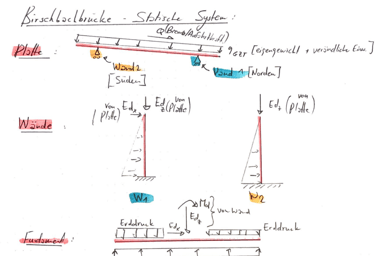 Birschbachbrücke - Statische System:
Q (Brems/
Platte :
q GZT [Eigengewicht + veränderliche Einw.]
Wand 2
[Süden]
Wand 1 [Norden]
von Platte Ed,x
Ed,z (von Platte)
Ed,z (von Platte)
Wände :
W1
W2
Med
Ed,z
Ed,x
von Wand
Erddruck
Erddruck
Fundament :